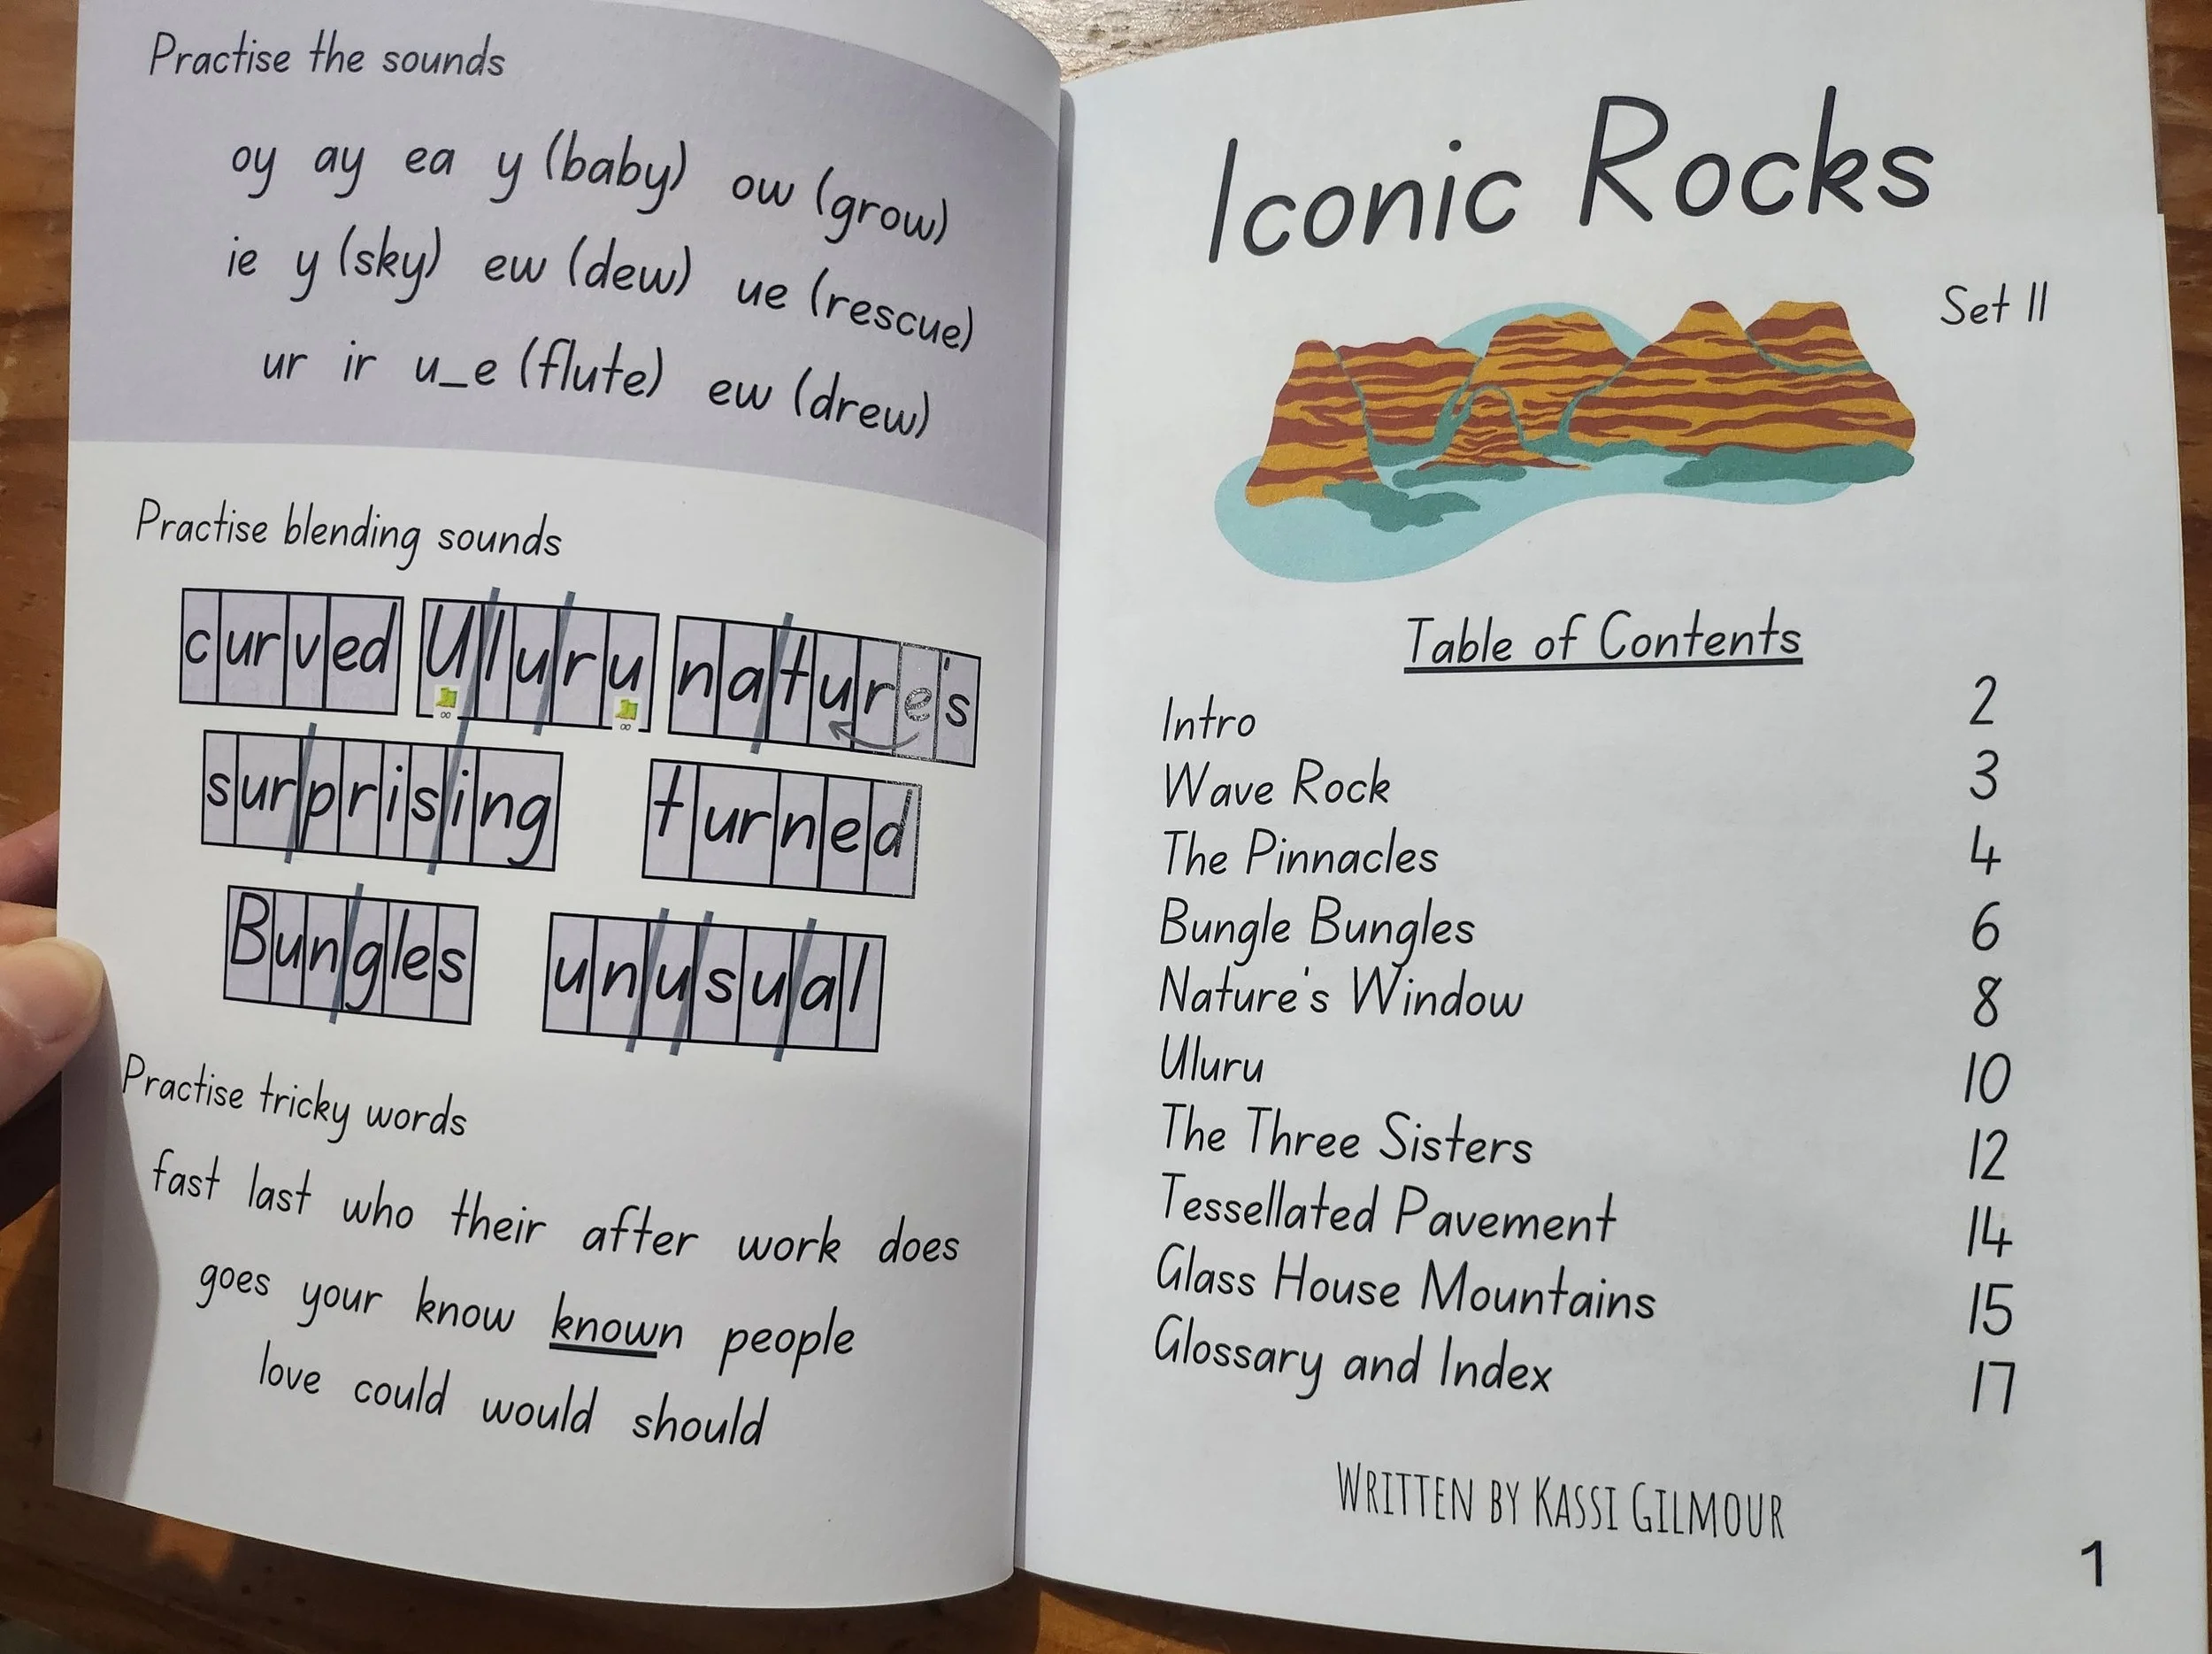 Practise the sounds
oy ay ea y (baby) ow (grow)
ie y (sky) ew (dew) ue (rescue)
ur ir u_e (flute) ew (drew)
Practise blending sounds
curved Uluru nature's
surprising turned
Bungles unusual
Practise tricky words
fast last who their after work does
goes your know known people
love could would should
Iconic Rocks
Set 11
Table of Contents
Intro 2
Wave Rock 3
The Pinnacles 4
Bungle Bungles 6
Nature's Window 8
Uluru 10
The Three Sisters 12
Tessellated Pavement 14
Glass House Mountains 15
Glossary and Index 17
WRITTEN BY KASSI GILMOUR
1